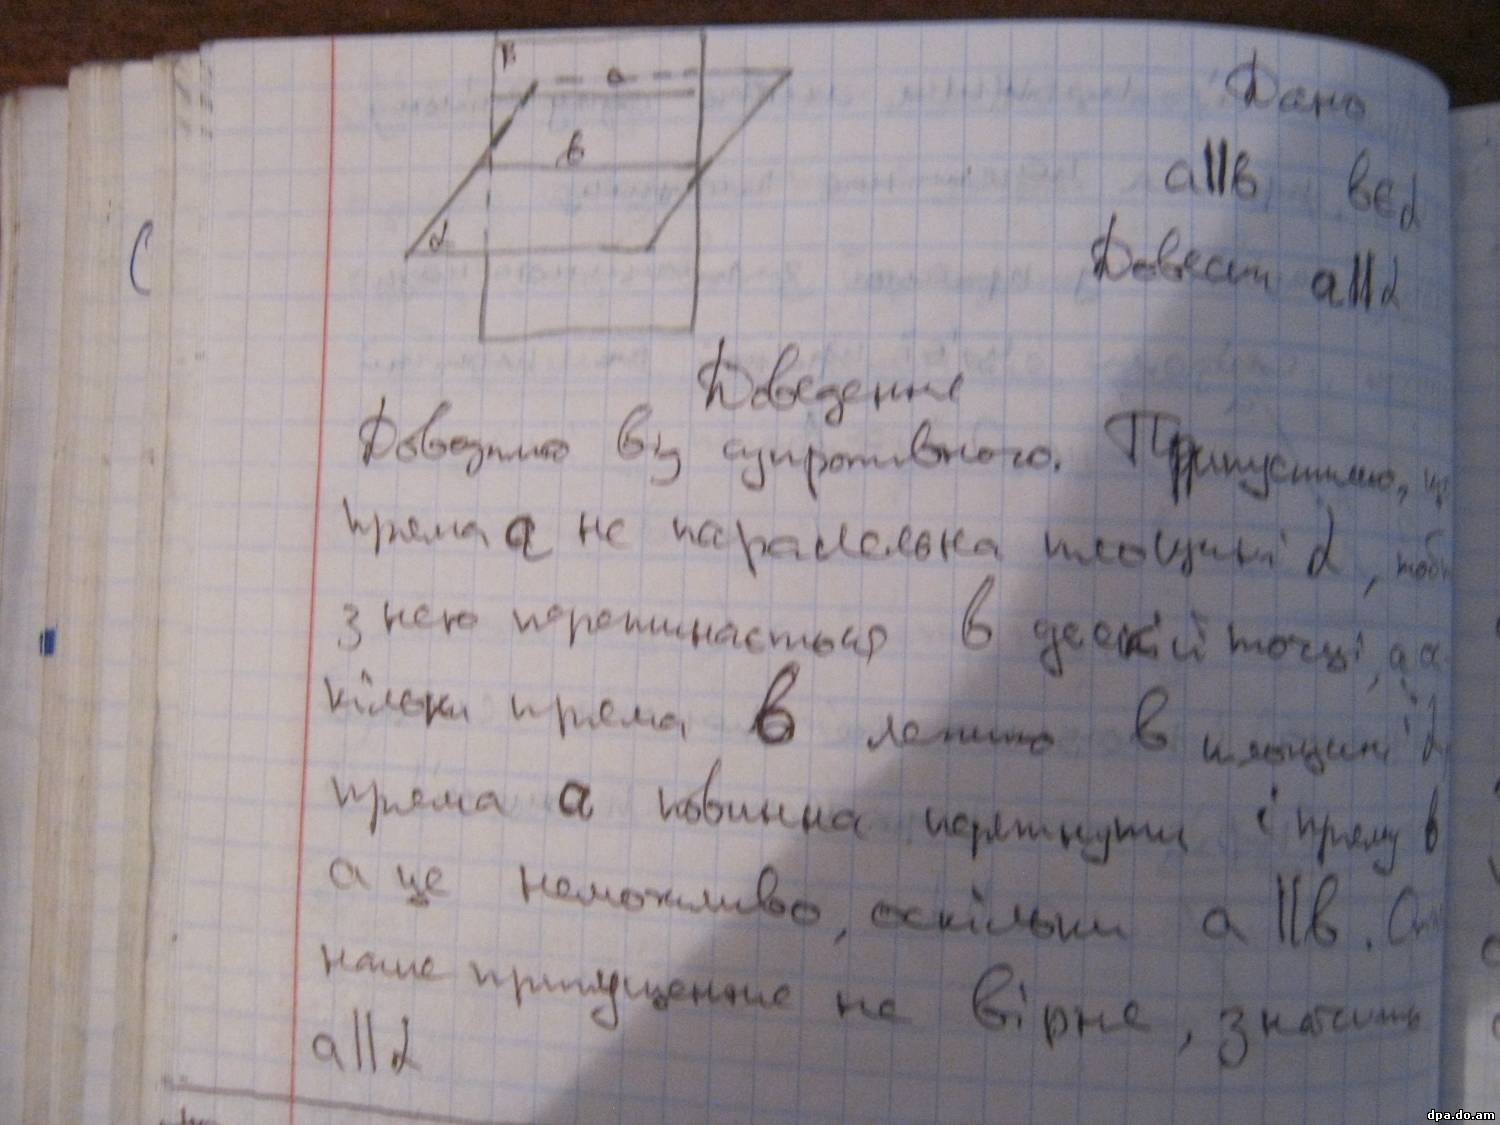 a
в
α
Дано
a||в вєα
Довести a||α
Доведення
Доведемо від супротивного. Припустимо, що
пряма a не паралельна площині α, тобто
з нею перетинається в деякій точці, а
кільки пряма в лежить в площині α
пряма a повинна перетнути і пряму в
а це неможливо, оскільки a||в.
наше припущення не вірне, значить
a||α
dpa.do.am